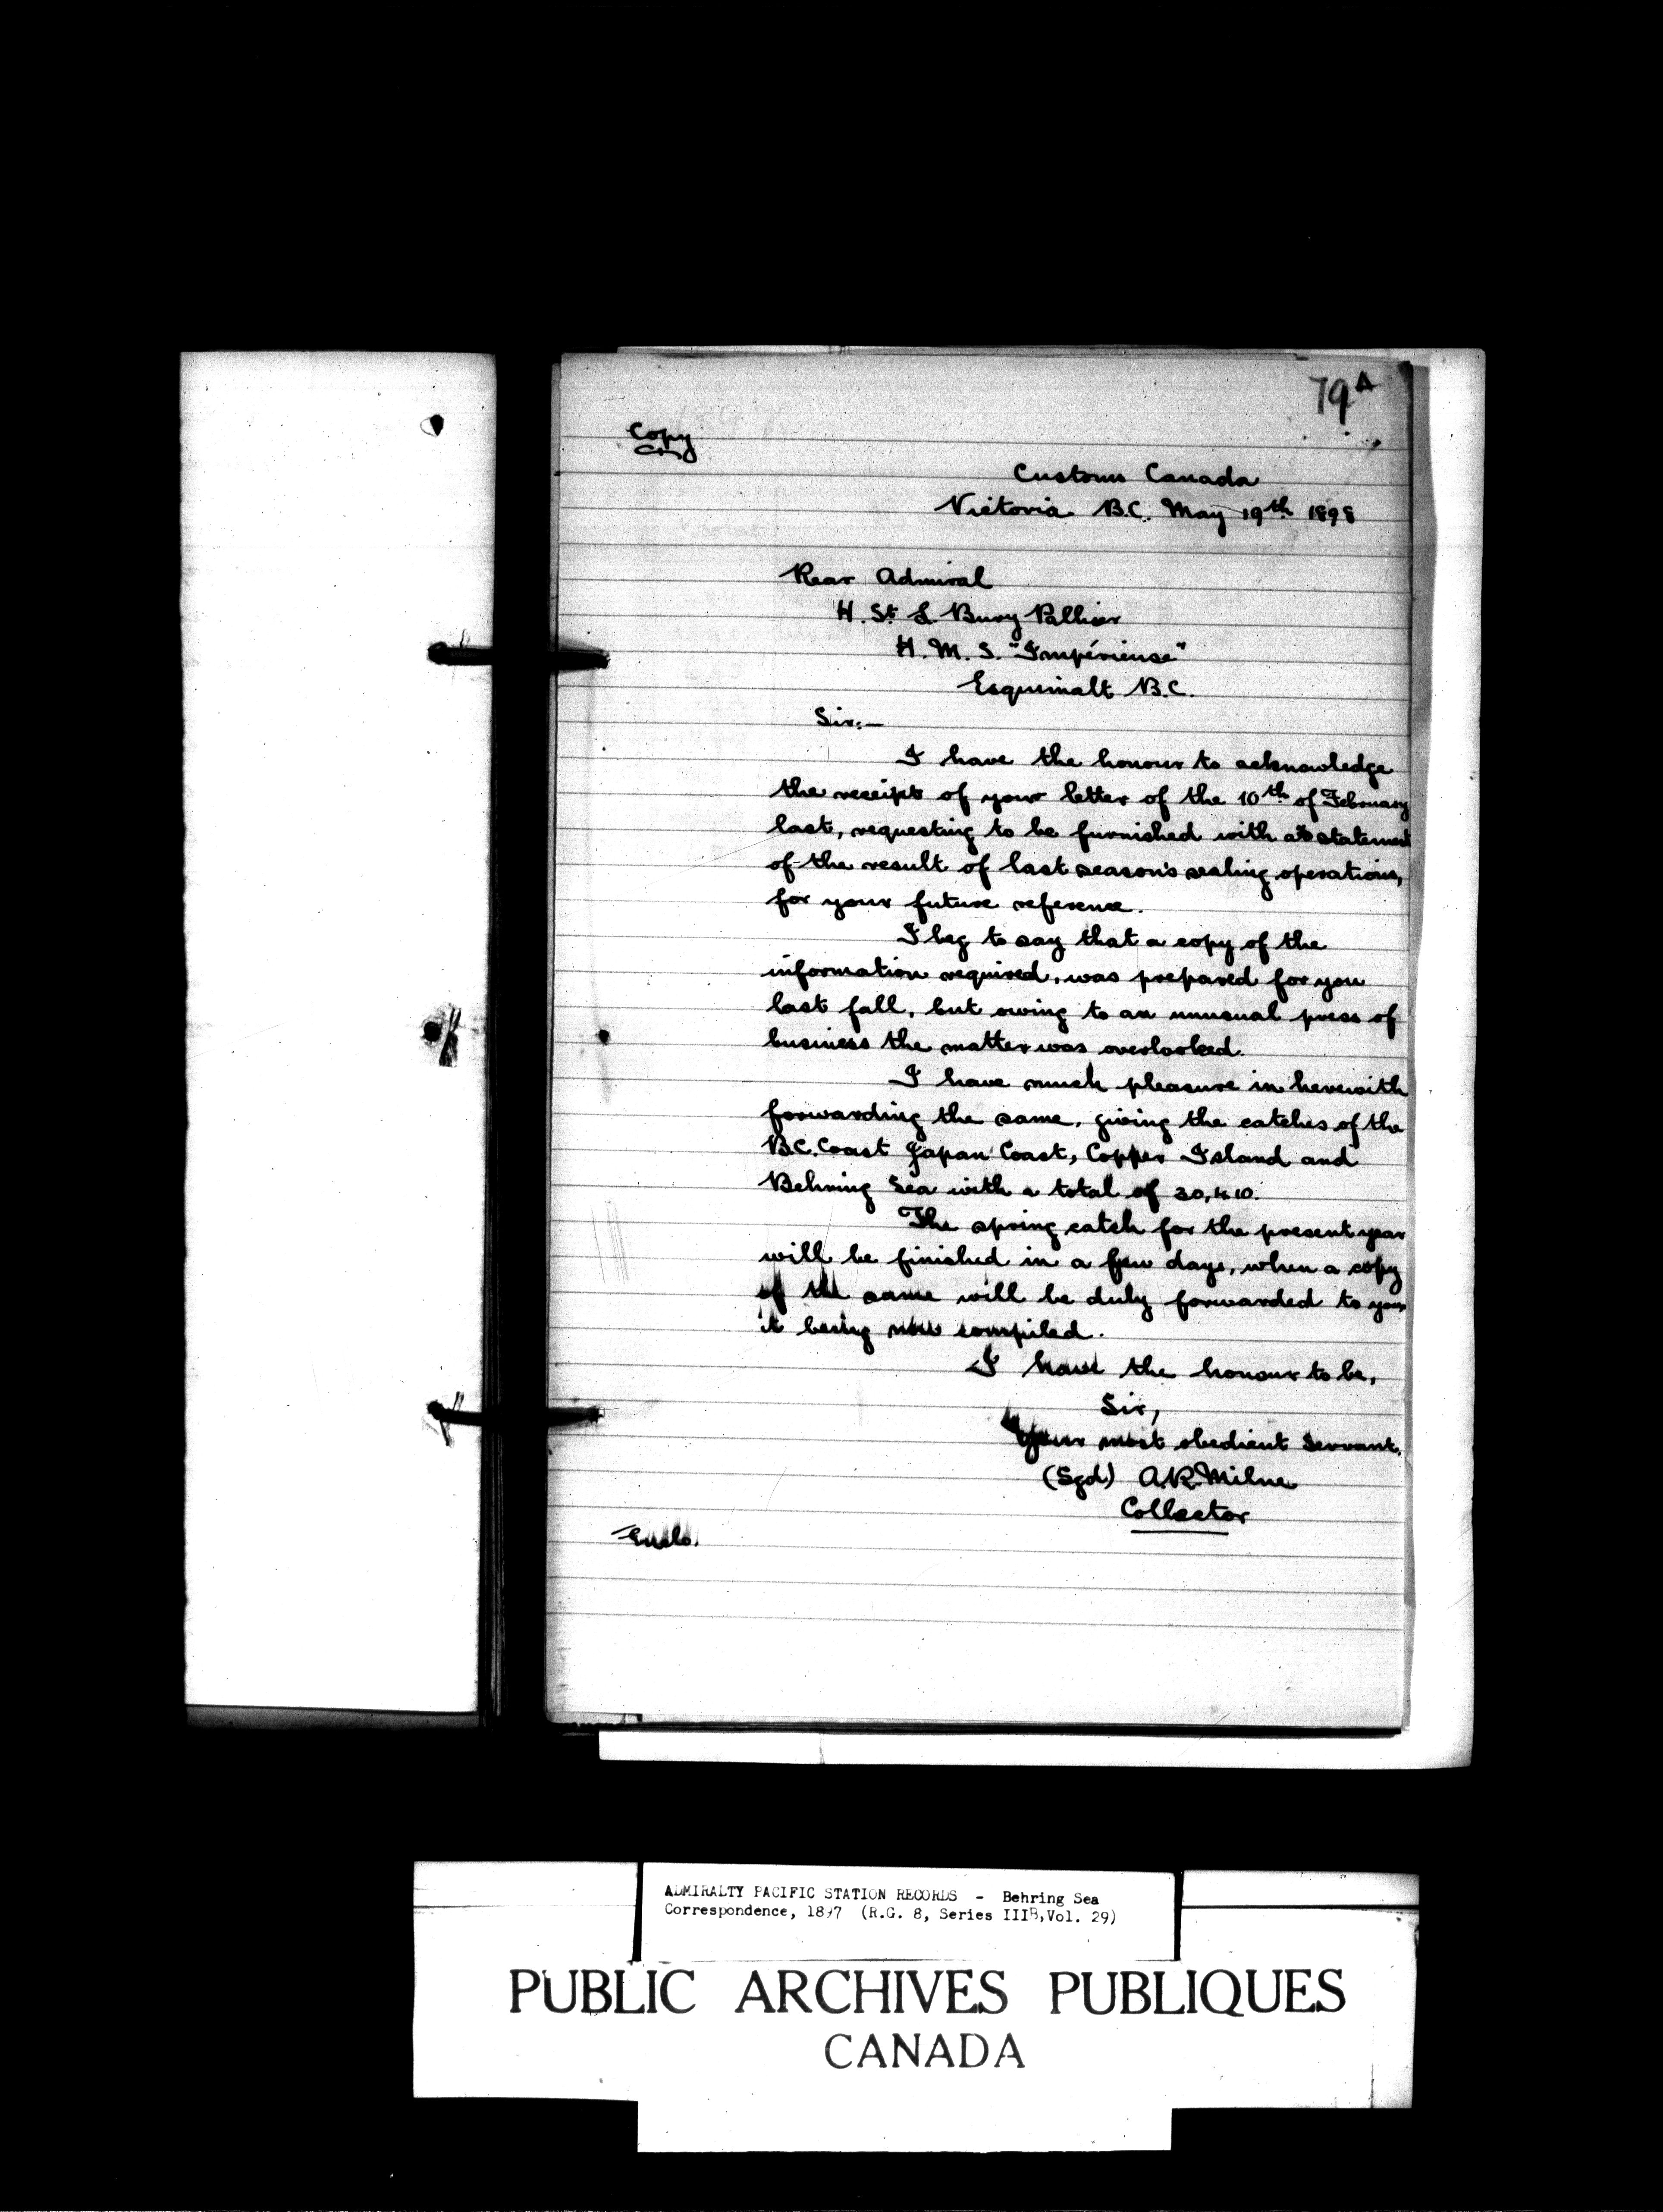 79A
Copy
Customs Canada
Victoria B.C. May 19th 1898
Rear Admiral
H. St. L. Bury Pallier
H.M.S. "Impérieuse"
Esquimalt B.C.
Sir:—
I have the honour to acknowledge
the receipt of your letter of the 10th of February
last, requesting to be furnished with a statement
of the result of last season's sealing operations,
for your future reference.
I beg to say that a copy of the
information required, was prepared for you
last fall, but owing to an unusual press of
business the matter was overlooked.
I have much pleasure in herewith
forwarding the same, giving the catches of the
B.C. Coast Japan Coast, Copper Island and
Behring Sea with a total of 30,410.
The spring catch for the present year
will be finished in a few days, when a copy
of the same will be duly forwarded to you
it being now compiled.
I have the honour to be,
Sir,
Your most obedient Servant,
(Sgd) A.R. Milne
Collector
Enclo.
ADMIRALTY PACIFIC STATION RECORDS - Behring Sea
Correspondence, 1897 (R.G. 8, Series IIIB, Vol. 29)
PUBLIC ARCHIVES PUBLIQUES
CANADA